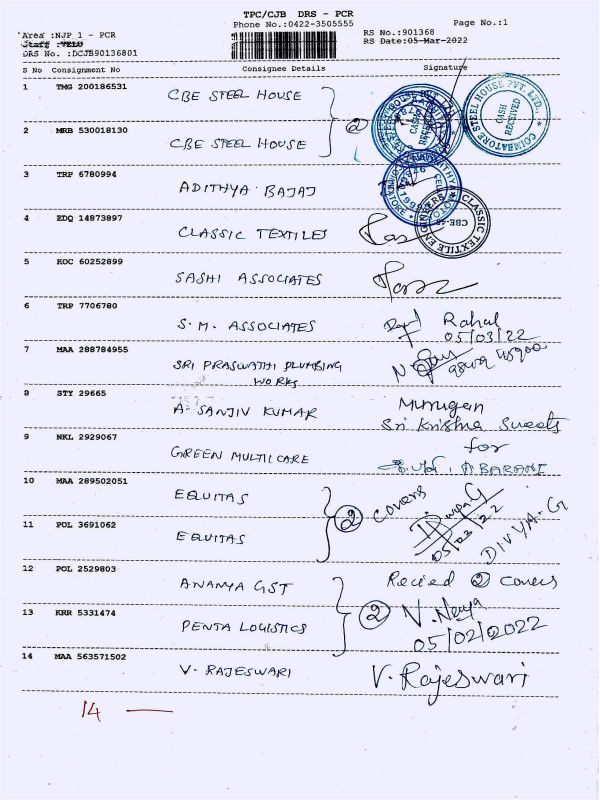 TPC/CJB DRS - PCR
Phone No.:0422-3505555
Page No.:1
Area :NJP 1 - PCR
RS No.:901368
Staff :VELU
RS Date:05-Mar-2022
DRS No. :DCJB90136801
S No Consignment No Consignee Details Signature
1 TMG 200186531 CBE STEEL HOUSE
2 MRB 530018130 CBE STEEL HOUSE
2
COIMBATORE STEEL HOUSE PVT. LTD.,
CASH RECEIVED
3 TRP 6780994 ADITHYA BAJAJ
4 ZDQ 14873897 CLASSIC TEXTILES
CLASSIC TEXTILE ENGINEERS
5 KOC 60252899 SASHI ASSOCIATES
6 TRP 7706780 S.M. ASSOCIATES Rahul
05/03/22
7 MAA 288784955 SRI PRASWATHI PLUMBING
WORKS
8 STY 29665 A. SANJIV KUMAR Murugan
Sri Krishna Sweets
9 NKL 2929067 GREEN MULTICARE for
10 MAA 289502051 EQUITAS
11 POL 3691062 EQUITAS
2 covers
05/03/22
DIVYA-G
12 POL 2529803 ANANYA GST Recied 2 covers
13 KRR 5331474 PENTA LOGISTICS 2
05/02/2022
14 MAA 563571502 V. RAJESWARI V. Rajeswari
14 —